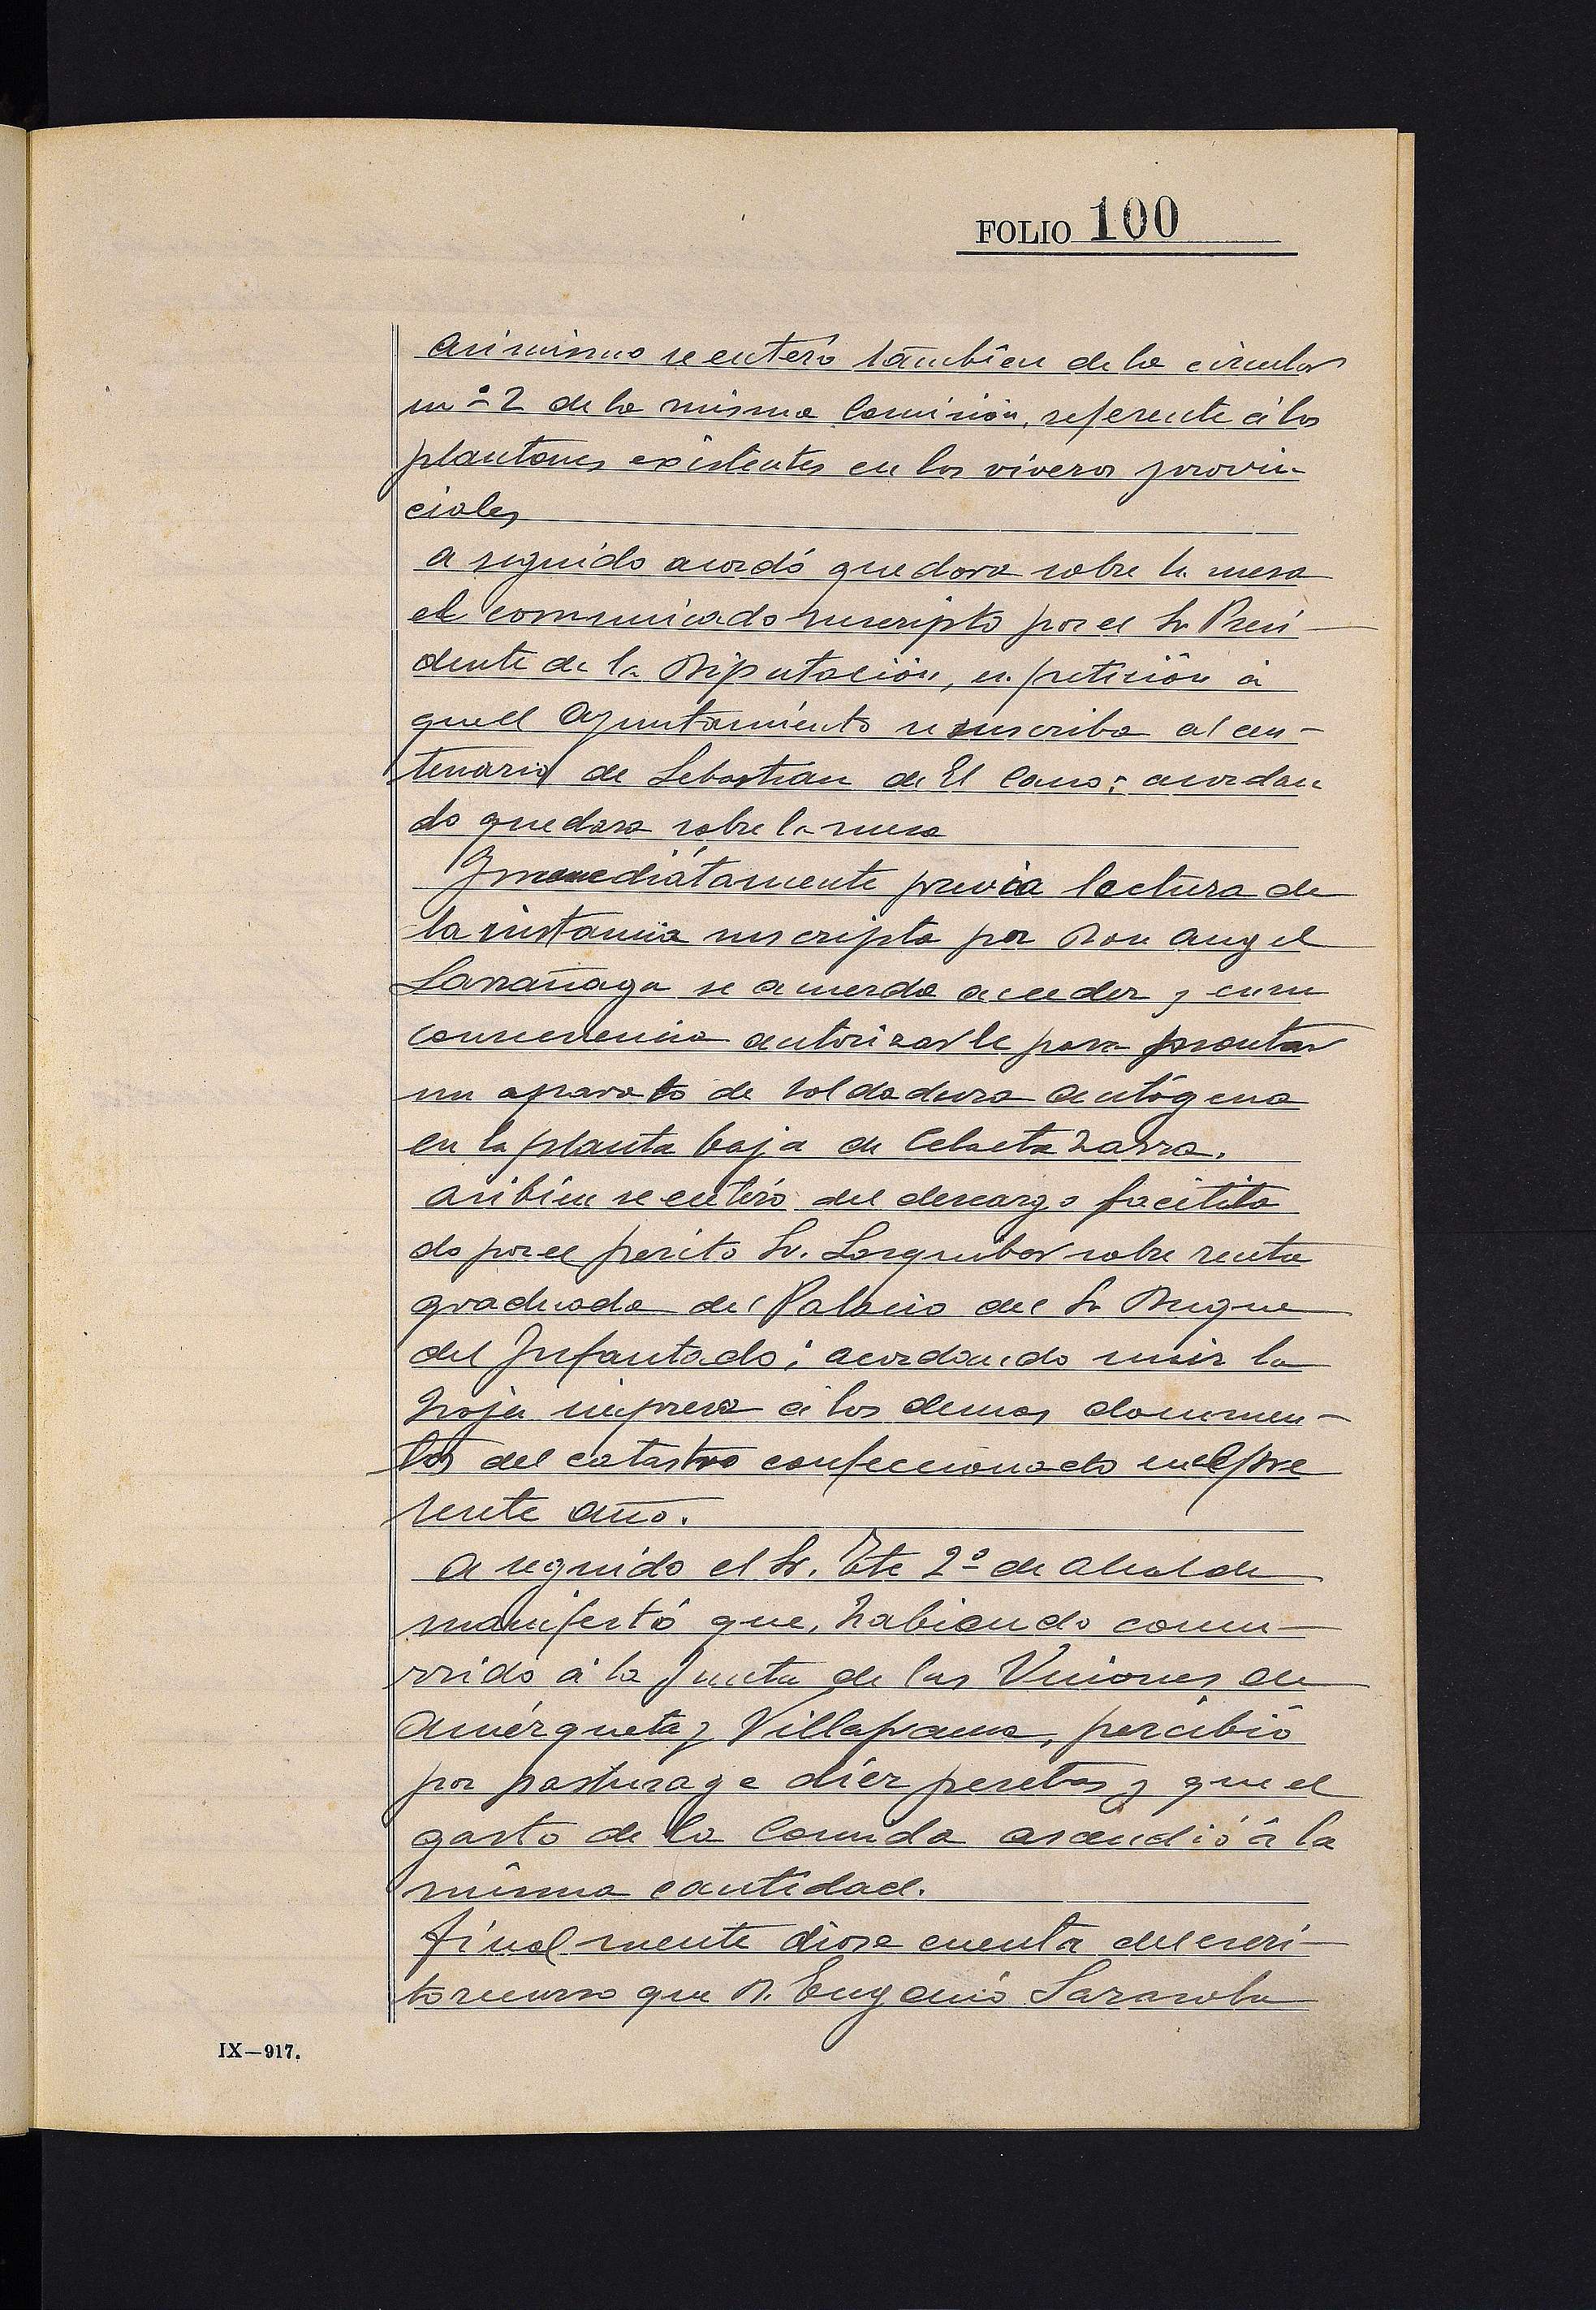 FOLIO 100
Asimismo se enteró también de la circular
nº 2 de la misma Comisión, referente á los
plantones existentes en los viveros provin-
ciales
A seguido acordó quedara sobre la mesa
el comunicado suscripto por el Sr Presi-
dente de la Diputación, en petición á
que el Ayuntamiento se suscriba al cen-
tenario de Sebastian de El Cano; acordan
do quedara sobre la mesa
Inmediátamente previa lectura de
la instancia suscripta por Don Angel
Larrañaga se acuerda acceder y en su
consecuencia autorizarle para montar
un aparato de soldadura autógena
en la planta baja de Celaeta zarra.
Asi bien se enteró del descargo facilita
do por el perito Sr. Larguibar sobre renta
graduada del Palacio del Sr Duque
del Infantado; acordando unir la
hoja impresa á los demas documen-
tos del catastro confeccionado en el pre
sente año.
A seguido el Sr. Tte 2º de Alcalde
manifestó que, habiendo concu-
rrido á la Junta de las Uniones de
Amézqueta y Villafranca, percibió
por pasturage diez pesetas y que el
gasto de la Comida ascendió á la
misma cantidad.
Finalmente diose cuenta del escri-
to recurso que D. Eugenio Sarasola
IX—917.